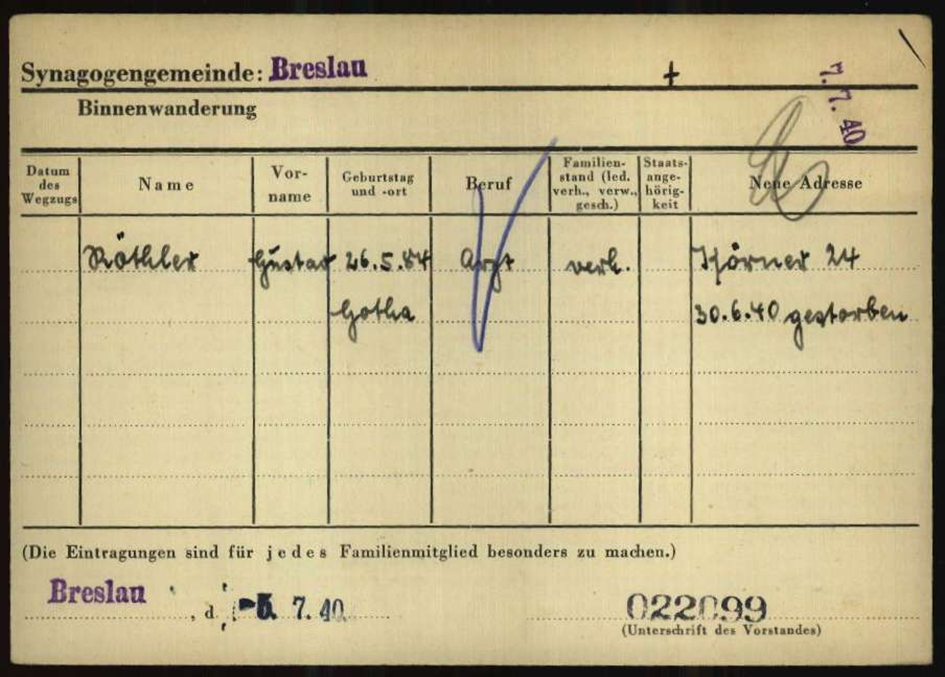 Synagogengemeinde: Breslau
+
7. 7. 40
Binnenwanderung
Datum des Wegzugs
Name
Vor-name
Geburtstag und -ort
Beruf
Familien-stand (led. verh., verw., gesch.)
Staats-ange-hörig-keit
Neue Adresse
Röthler Gustav 26.5.84 Arzt verh. Körner 24
Gotha 30.6.40 gestorben
(Die Eintragungen sind für jedes Familienmitglied besonders zu machen.)
Breslau , d. -5. 7. 40.
022099
(Unterschrift des Vorstandes)